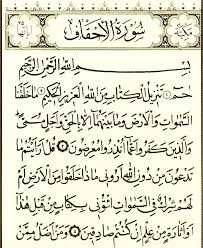 سُورَةُ الْأَحْقَافِ
بِسْمِ اللَّهِ الرَّحْمَٰنِ الرَّحِيمِ
حمٓ ۝ تَنزِيلُ الْكِتَٰبِ مِنَ اللَّهِ الْعَزِيزِ الْحَكِيمِ ۝ مَا خَلَقْنَا
السَّمَٰوَٰتِ وَالْأَرْضَ وَمَا بَيْنَهُمَآ إِلَّا بِالْحَقِّ وَأَجَلٍ مُّسَمًّى
وَالَّذِينَ كَفَرُوا عَمَّآ أُنذِرُوا مُعْرِضُونَ ۝ قُلْ أَرَءَيْتُم مَّا
تَدْعُونَ مِن دُونِ اللَّهِ أَرُونِي مَاذَا خَلَقُوا مِنَ الْأَرْضِ أَمْ
لَهُمْ شِرْكٌ فِي السَّمَٰوَٰتِ ائْتُونِي بِكِتَٰبٍ مِّن قَبْلِ هَٰذَآ
أَوْ أَثَٰرَةٍ مِّنْ عِلْمٍ إِن كُنتُمْ صَٰدِقِينَ ۝ وَمَنْ أَضَلُّ مِمَّن